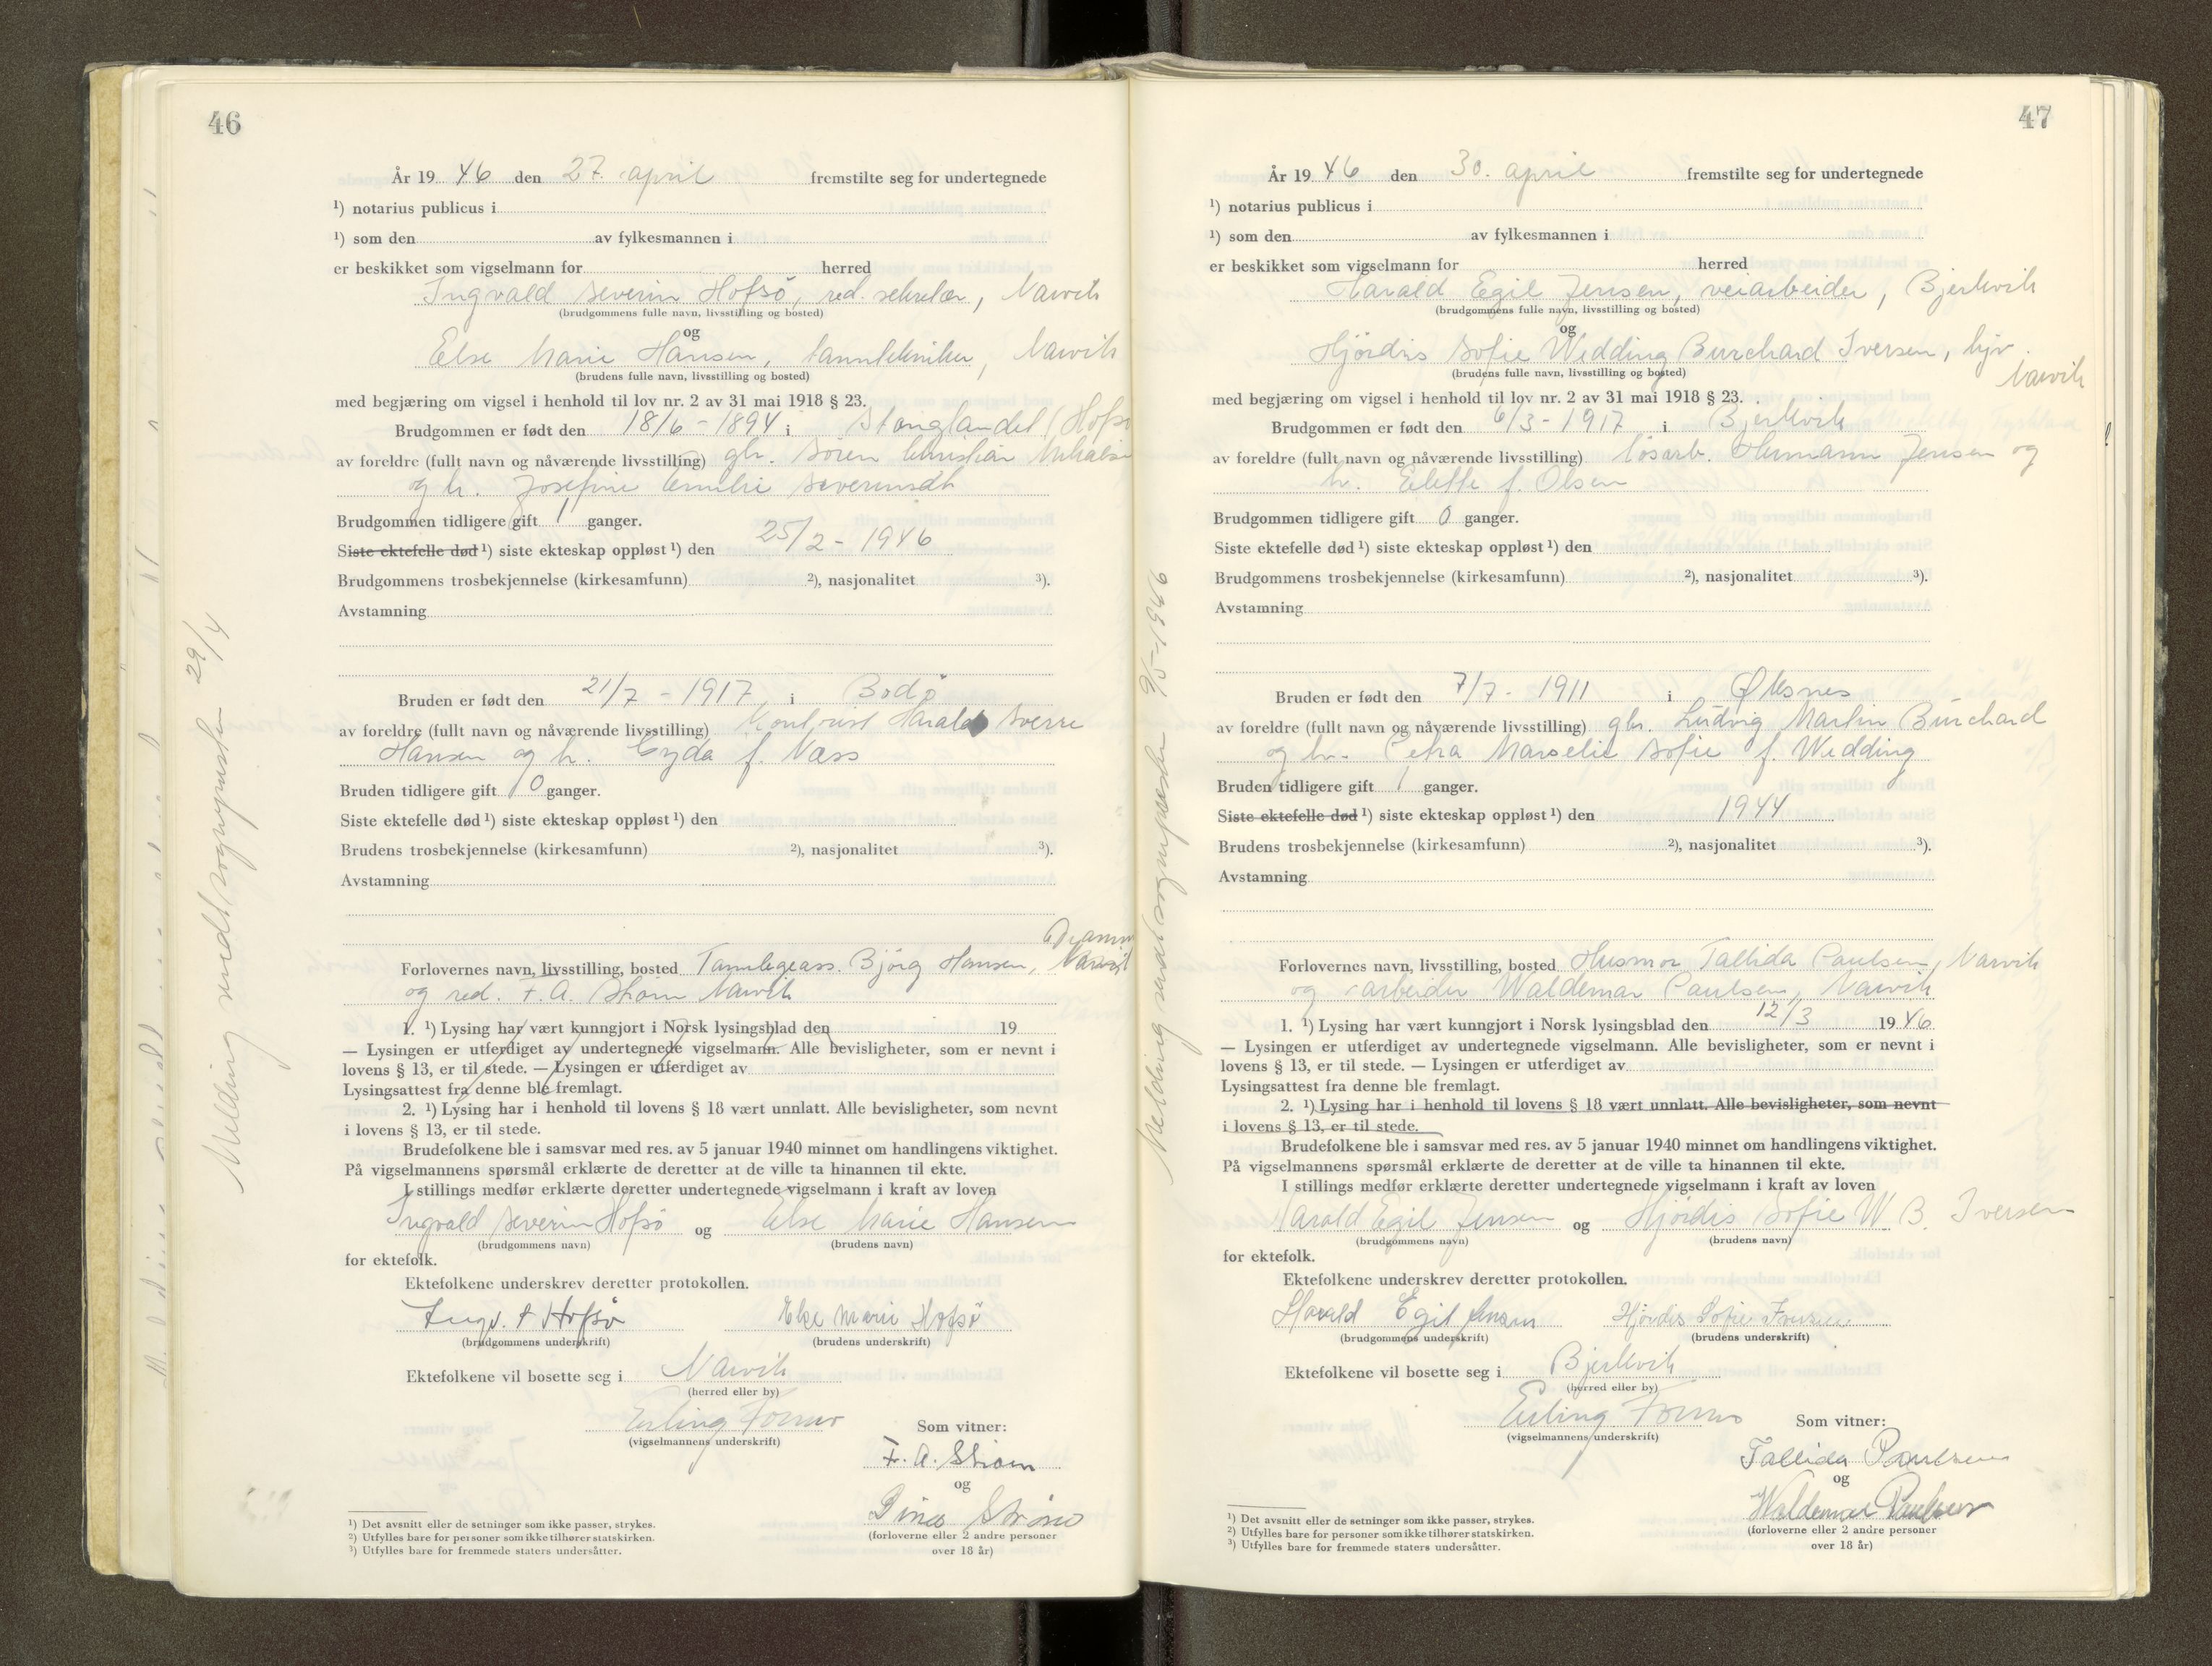 46
År 1946 den 27. april fremstilte seg for undertegnede
¹) notarius publicus i
¹) som den av fylkesmannen i
er beskikket som vigselmann for herred
Ingvald Severin Hofsö, red. sekretær, Narvik
(brudgommens fulle navn, livsstilling og bosted)
og
Else Marie Hansen, tanntekniker, Narvik
(brudens fulle navn, livsstilling og bosted)
med begjæring om vigsel i henhold til lov nr. 2 av 31 mai 1918 § 23.
Brudgommen er født den 18/6 - 1894 i Stonglandet (Hofsö
av foreldre (fullt navn og nåværende livsstilling) gbr. Sören Christian
og h. Josefine Severinsdt
Brudgommen tidligere gift 1 ganger.
Siste ektefelle død ¹) siste ekteskap oppløst ¹) den 25/2 - 1946
Brudgommens trosbekjennelse (kirkesamfunn) ²), nasjonalitet ³).
Avstamning
Bruden er født den 21/7 - 1917 i Bodö
av foreldre (fullt navn og nåværende livsstilling) Harald Sverre
Hansen og h. Gyda f. Næss
Bruden tidligere gift 0 ganger.
Siste ektefelle død ¹) siste ekteskap oppløst ¹) den
Brudens trosbekjennelse (kirkesamfunn) ²), nasjonalitet ³).
Avstamning
Forlovernes navn, livsstilling, bosted Tannlegeass. Björg Hansen, Narvik
og red. F. A. Strøm Narvik
1. ¹) Lysing har vært kunngjort i Norsk lysingsblad den 19
— Lysingen er utferdiget av undertegnede vigselmann. Alle bevisligheter, som er nevnt i
lovens § 13, er til stede. — Lysingen er utferdiget av
Lysingsattest fra denne ble fremlagt.
2. ¹) Lysing har i henhold til lovens § 18 vært unnlatt. Alle bevisligheter, som nevnt
i lovens § 13, er til stede.
Brudefolkene ble i samsvar med res. av 5 januar 1940 minnet om handlingens viktighet.
På vigselmannens spørsmål erklærte de deretter at de ville ta hinannen til ekte.
I stillings medfør erklærte deretter undertegnede vigselmann i kraft av loven
Ingvald Severin Hofsö og Else Marie Hansen
(brudgommens navn) (brudens navn)
for ektefolk.
Ektefolkene underskrev deretter protokollen.
Ingv. S Hofsö Else Marie Hofsö
(brudgommens underskrift) (brudens underskrift)
Ektefolkene vil bosette seg i Narvik
(herred eller by)
Erling
(vigselmannens underskrift)
Som vitner:
F. A. Strøm
og
Strøm
(forloverne eller 2 andre personer
over 18 år)
¹) Det avsnitt eller de setninger som ikke passer, strykes.
²) Utfylles bare for personer som ikke tilhører statskirken.
³) Utfylles bare for fremmede staters undersåtter.
Melding sendt sognepresten 29/4
47
År 1946 den 30. april fremstilte seg for undertegnede
¹) notarius publicus i
¹) som den av fylkesmannen i
er beskikket som vigselmann for herred
Harald Egil Jensen, veiarbeider, Bjerkvik
(brudgommens fulle navn, livsstilling og bosted)
og
Hjördis Sofie Wedding Burchard Iversen, hjv.
Narvik
(brudens fulle navn, livsstilling og bosted)
med begjæring om vigsel i henhold til lov nr. 2 av 31 mai 1918 § 23.
Brudgommen er født den 6/3 - 1917 i Bjerkvik
av foreldre (fullt navn og nåværende livsstilling) løsarb. Hermann Jensen og
h. f. Olsen
Brudgommen tidligere gift 0 ganger.
Siste ektefelle død ¹) siste ekteskap oppløst ¹) den
Brudgommens trosbekjennelse (kirkesamfunn) ²), nasjonalitet ³).
Avstamning
Bruden er født den 7/7 - 1911 i Øksnes
av foreldre (fullt navn og nåværende livsstilling) gbr. Ludvig Martin Burchard
og h. Petra Marselie Sofie f. Wedding
Bruden tidligere gift 1 ganger.
Siste ektefelle død ¹) siste ekteskap oppløst ¹) den 1944
Brudens trosbekjennelse (kirkesamfunn) ²), nasjonalitet ³).
Avstamning
Forlovernes navn, livsstilling, bosted Husmor Tallida Paulsen, Narvik
og arbeider Waldemar Paulsen, Narvik
1. ¹) Lysing har vært kunngjort i Norsk lysingsblad den 12/3 1946
— Lysingen er utferdiget av undertegnede vigselmann. Alle bevisligheter, som er nevnt i
lovens § 13, er til stede. — Lysingen er utferdiget av
Lysingsattest fra denne ble fremlagt.
2. ¹) Lysing har i henhold til lovens § 18 vært unnlatt. Alle bevisligheter, som nevnt
i lovens § 13, er til stede.
Brudefolkene ble i samsvar med res. av 5 januar 1940 minnet om handlingens viktighet.
På vigselmannens spørsmål erklærte de deretter at de ville ta hinannen til ekte.
I stillings medfør erklærte deretter undertegnede vigselmann i kraft av loven
Harald Egil Jensen og Hjördis Sofie W. B. Iversen
(brudgommens navn) (brudens navn)
for ektefolk.
Ektefolkene underskrev deretter protokollen.
Harald Egil Jensen Hjördis Sofie Iversen
(brudgommens underskrift) (brudens underskrift)
Ektefolkene vil bosette seg i Bjerkvik
(herred eller by)
Erling
(vigselmannens underskrift)
Som vitner:
Tallida Paulsen
og
Waldemar Paulsen
(forloverne eller 2 andre personer
over 18 år)
¹) Det avsnitt eller de setninger som ikke passer, strykes.
²) Utfylles bare for personer som ikke tilhører statskirken.
³) Utfylles bare for fremmede staters undersåtter.
Melding sendt sognepresten 9/5-1946